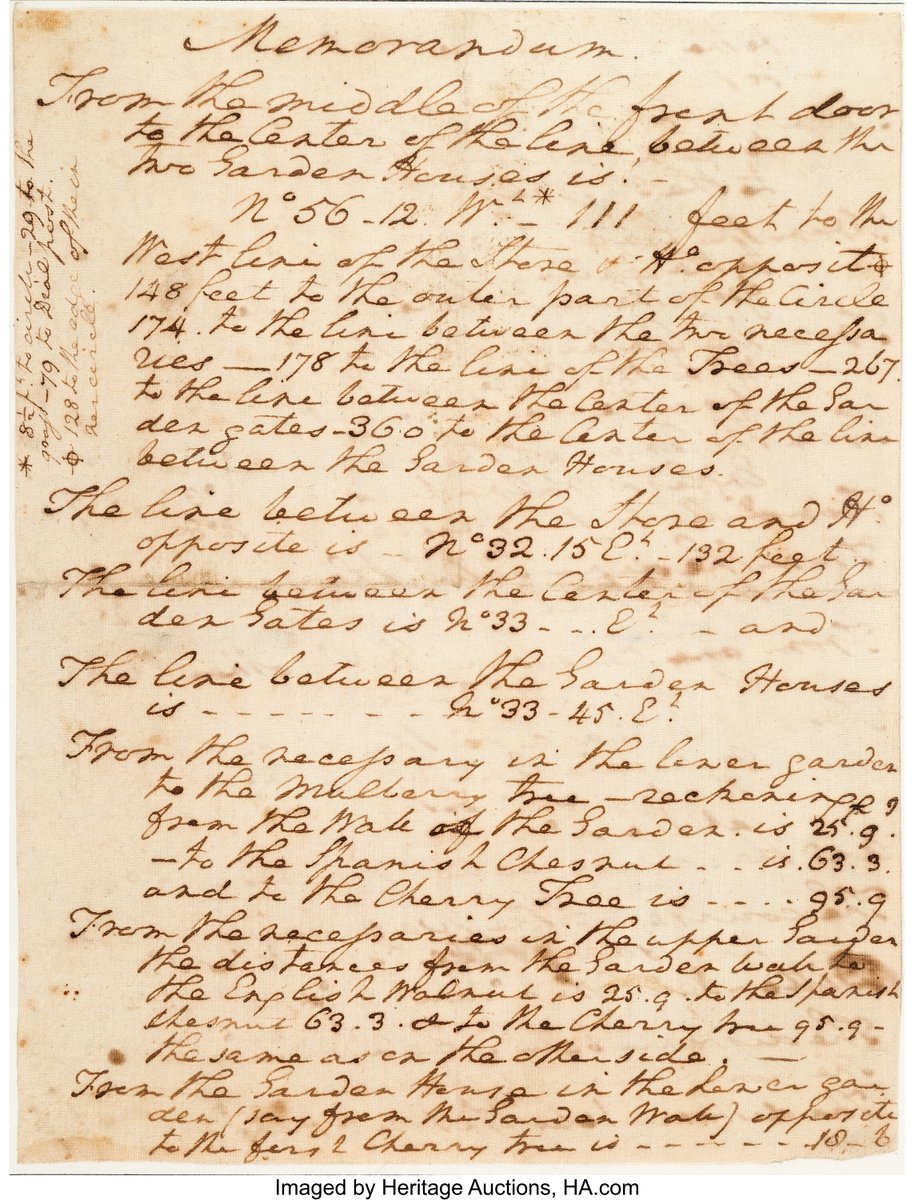 Memorandum.
From the middle of the front door
to the Center of the line between the
two Garden Houses is.-
N°56-12. Wt.* - 111 feet to the
West line of the Store & H°. opposite ф
148 feet to the outer part of the Circle
174. to the line between the two necessa
ries — 178 to the line of the Trees - 267.
to the line between the Center of the Gar
den gates - 360 to the Center of the line
between the Garden Houses.
The line between the Store and H°
opposite is - N°32.15 Et. - 132 feet.
The line between the Center of the Gar
den Gates is N°33 - .. Et. - and
The line between the Garden Houses
is - - - - - - - - N°33-45. Et.
From the necessary in the lower garden
to the Mulberry tree - reckening
from the Wall of the Garden. is 25.9.
- to the Spanish Chesnut - . . is.63.3.
and to the Cherry Tree is - - - - 95.9
From the necessaries in the upper Garden
the distances from the Garden Wall to
the English Walnut is 25.9. to the Spanish
chesnut 63.3. & to the Cherry tree 95.9 -
the same as on the other side. —
From the Garden House in the Lower gar
den (say from the Garden Wall) opposite
to the first Cherry tree is - - - - - - 18-6
* 8½ ft to circle - 29 to the
gays - 79 to Dial post.
ф 128 to the edge of the in
ner circle.
Imaged by Heritage Auctions, HA.com